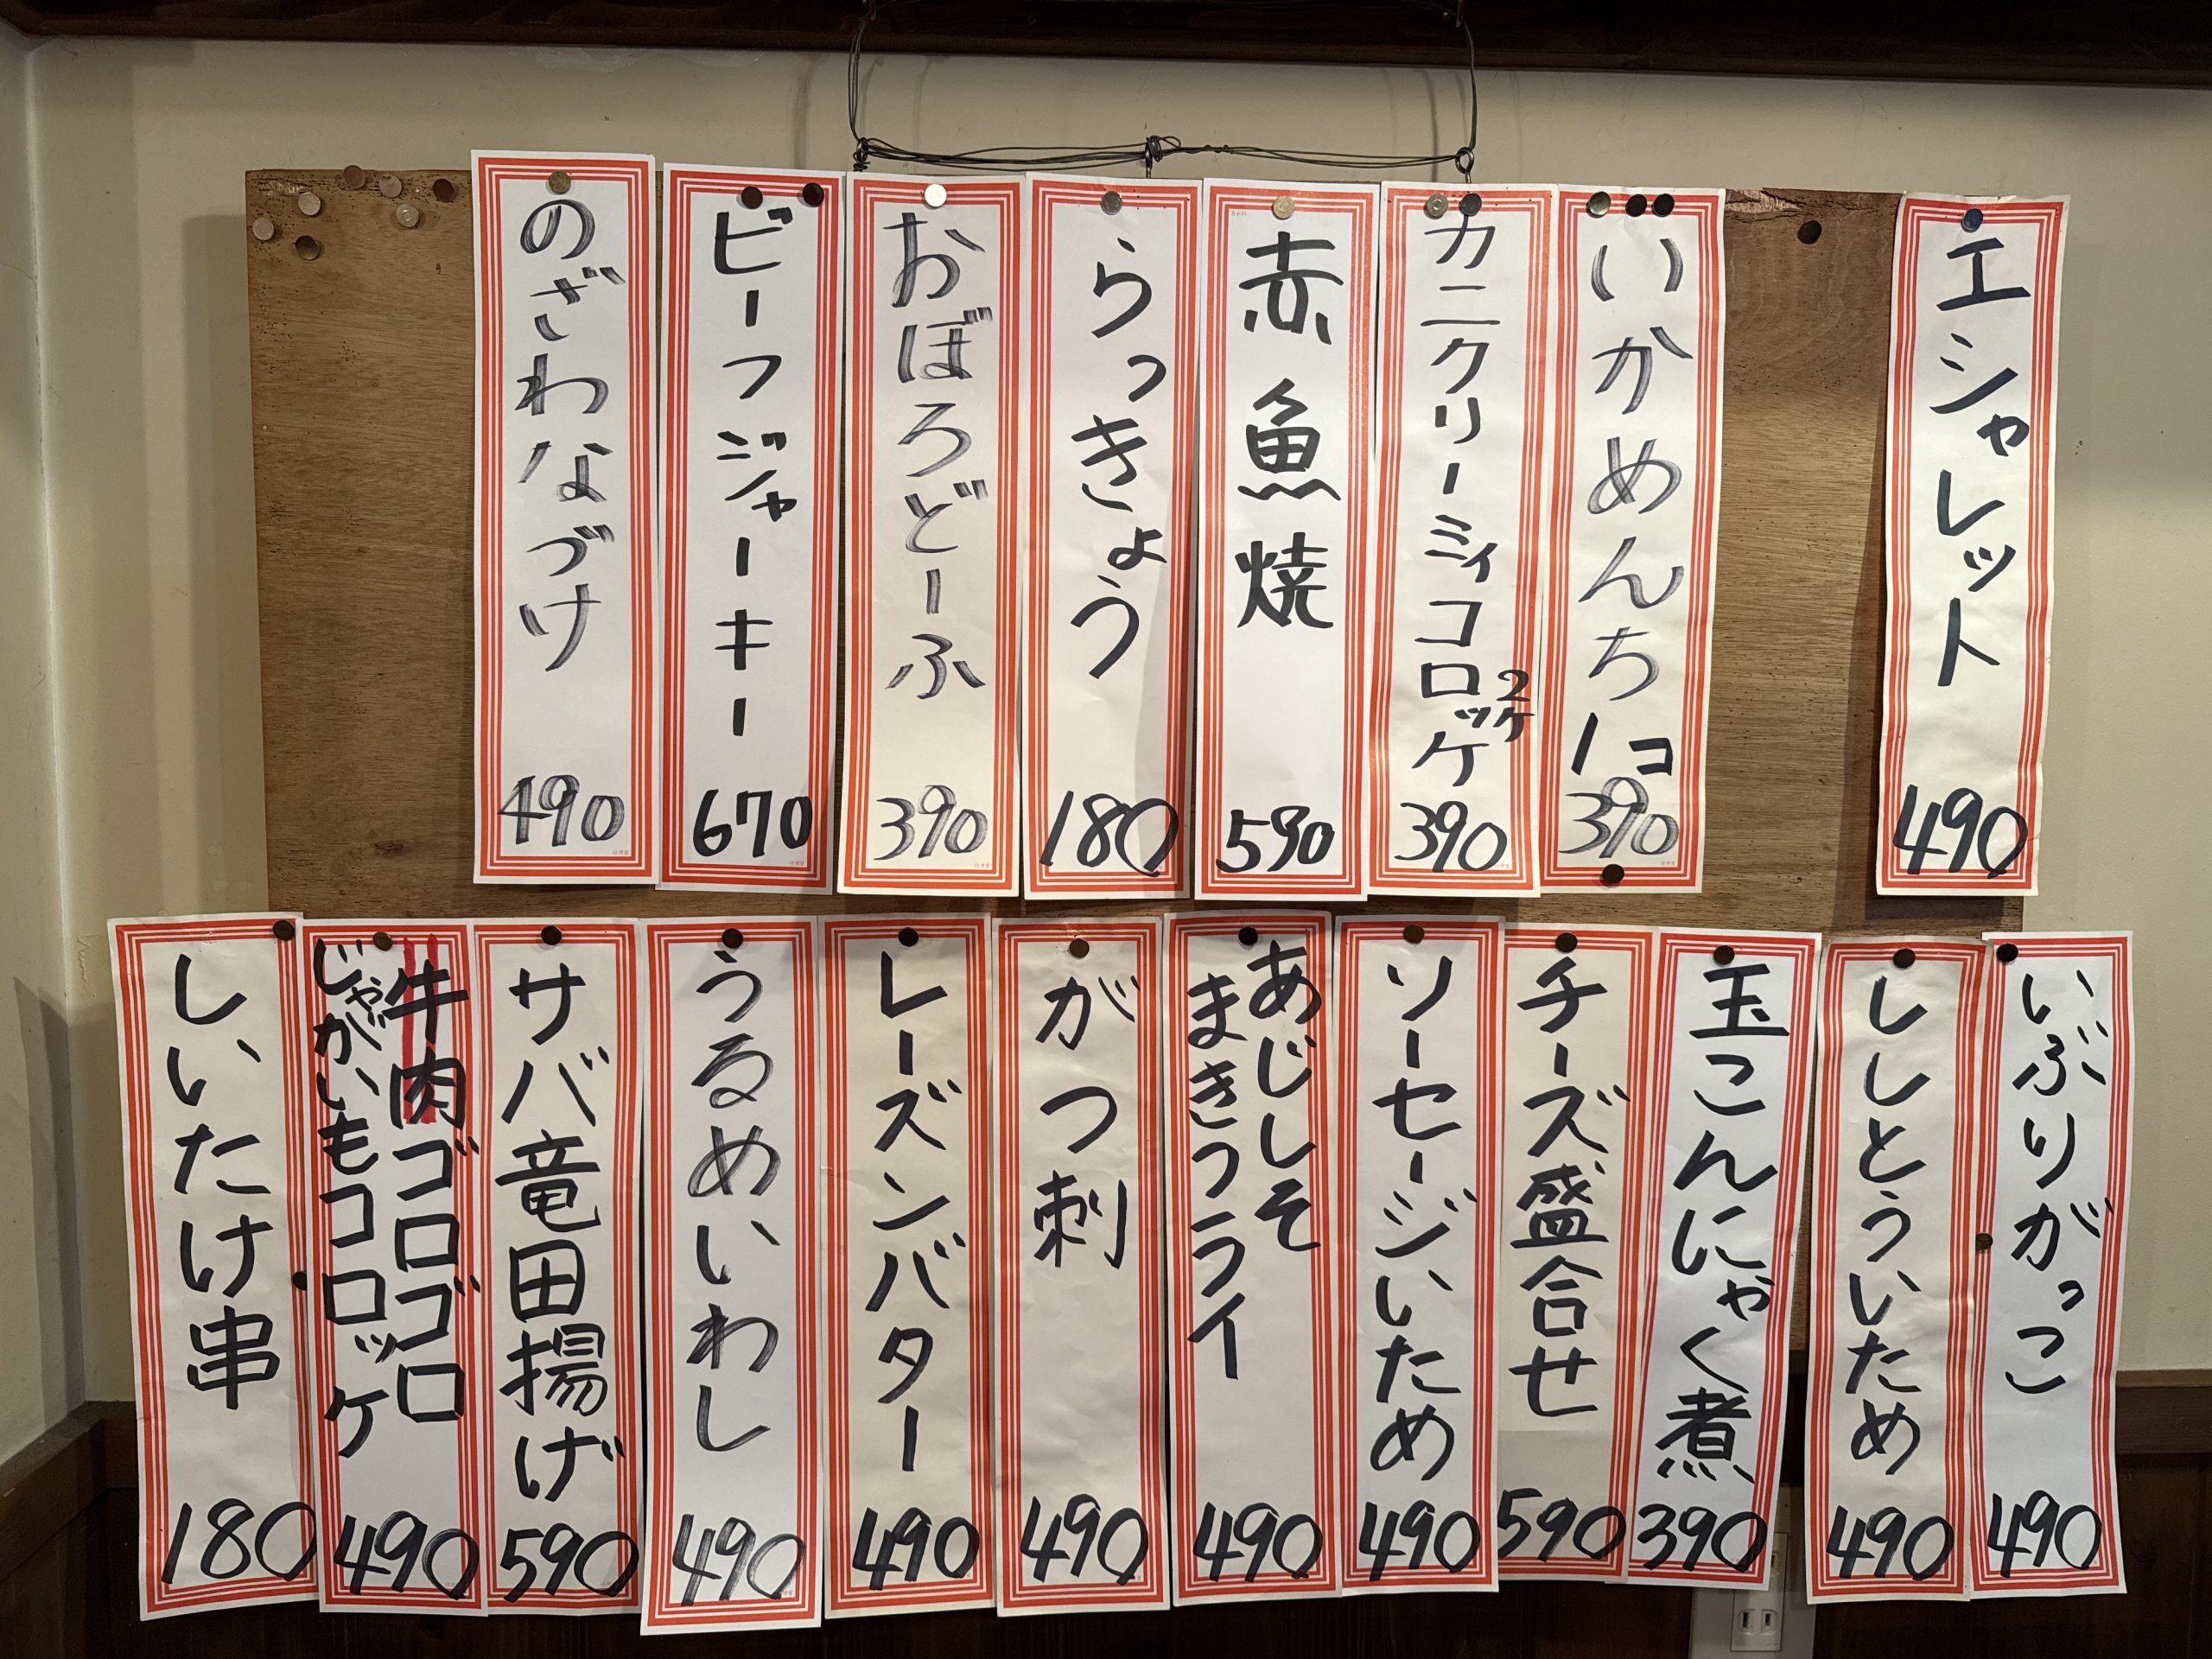 エシャレット
490
いかめんち
1コ
390
カニクリーミィコロッケ
2ケ
390
赤魚焼
590
らっきょう
180
おぼろどーふ
390
ビーフジャーキー
670
のざわなづけ
490
いぶりがっこ
490
ししとういため
490
玉こんにゃく煮
390
チーズ盛合せ
590
ソーセージいため
490
あじしそ
まきフライ
490
がつ刺
490
レーズンバター
490
うるめいわし
490
サバ竜田揚げ
590
牛肉ゴロゴロ
じゃがいもコロッケ
490
しいたけ串
180